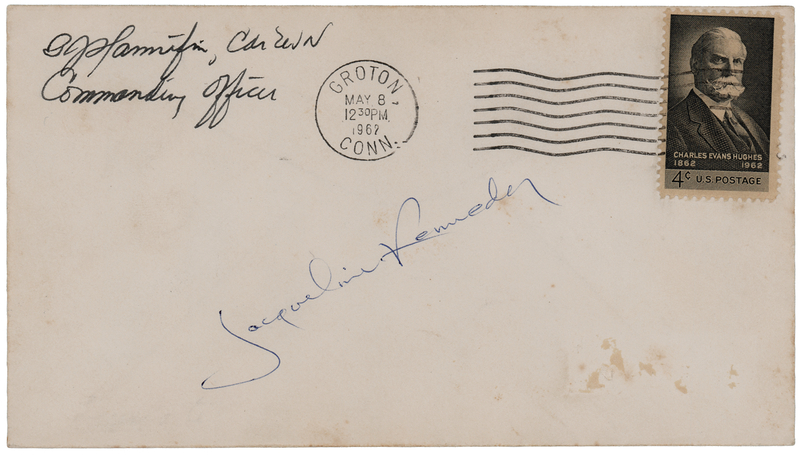 P J Hannifin, Cdr USN
Commanding Officer
GROTON
MAY 8
12 30 PM
1962
CONN.
CHARLES EVANS HUGHES
1862 1962
4¢ U.S. POSTAGE
Jacqueline Kennedy